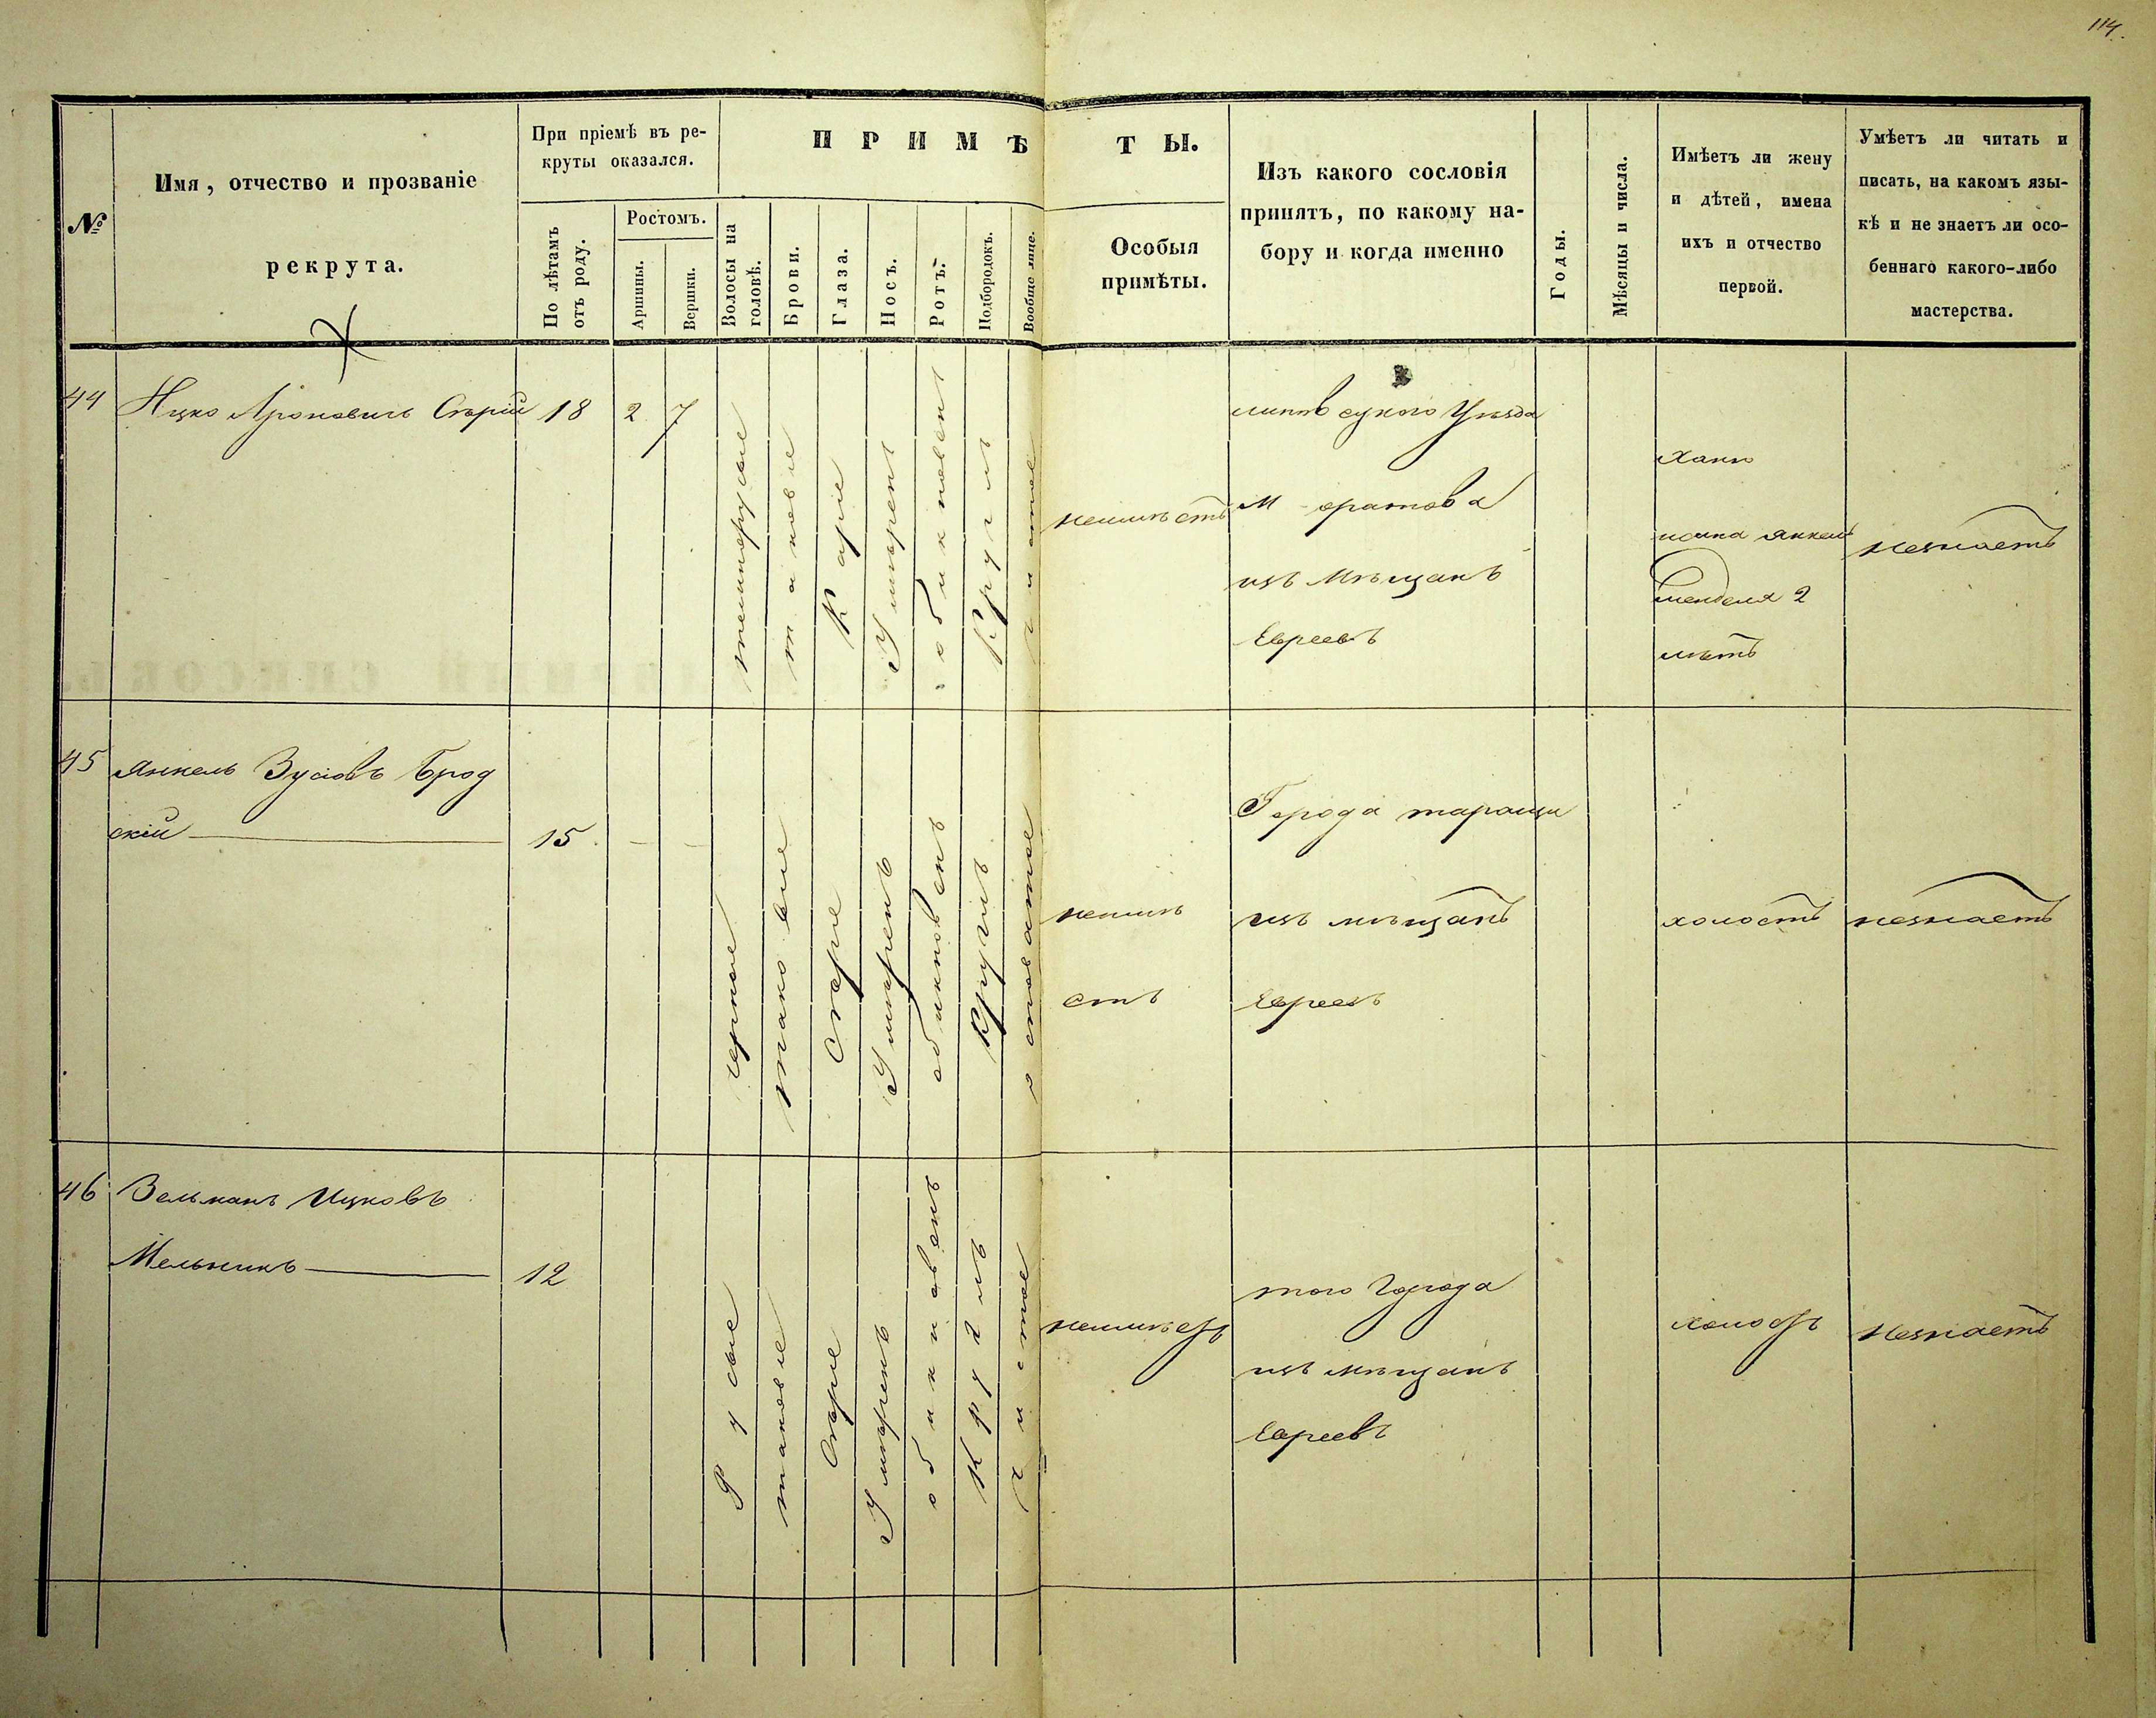 114.
№
Имя, отчество и прозваніе
рекрута.
При пріемѣ въ ре-
круты оказался.
По лѣтамъ
отъ роду.
Ростомъ.
Аршины.
Вершки.
ПРИМѢТЫ.
Волосы на
головѣ.
Брови.
Глаза.
Носъ.
Ротъ.
Подбородокъ.
Вообще лице.
Особыя
примѣты.
Изъ какого сословія
принятъ, по какому на-
бору и когда именно
Годы.
Мѣсяцы и числа.
Имѣетъ ли жену
и дѣтей, имена
ихъ и отчество
первой.
Умѣетъ ли читать и
писать, на какомъ язы-
кѣ и не знаетъ ли осо-
беннаго какого-либо
мастерства.
44
Ицко Ароновичъ Сѣрій
18
2
7
темнорусые
таковіе
Каріе
Умѣренъ
обикновен
Круглъ
чистое
неимѣетъ
уѣзда
М
изъ Мѣщанъ
Евреевъ
Ханн
янкель
менделя 2
лѣтъ
незнаетъ
45
Янкель Зусіовъ Брод
скій
15
черные
таковіе
Сѣріе
Умѣренъ
обикновенъ
Круглъ
неимѣ
етъ
Города таращи
изъ мѣщанъ
Евреевъ
холостъ
незнаетъ
46
Зельманъ Ицковъ
Мельникъ
12
Русые
таковіе
Сѣріе
Умѣренъ
обикновенъ
Круглъ
чистое
неимѣетъ
того Города
изъ мѣщанъ
Евреевъ
холостъ
Незнаетъ